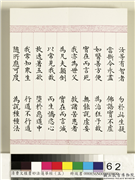 汝等有智者　勿於此生疑
當斷令永盡　佛語實不虛
如醫善方便　為治狂子故
實在而言死　無能說虛妄
我亦為世父　救諸苦患者
為凡夫顛倒　實在而言滅
以常見我故　而生憍恣心
放逸著五欲　墮於惡道中
我常知眾生　行道不行道
隨所應可度　為說種種法
62